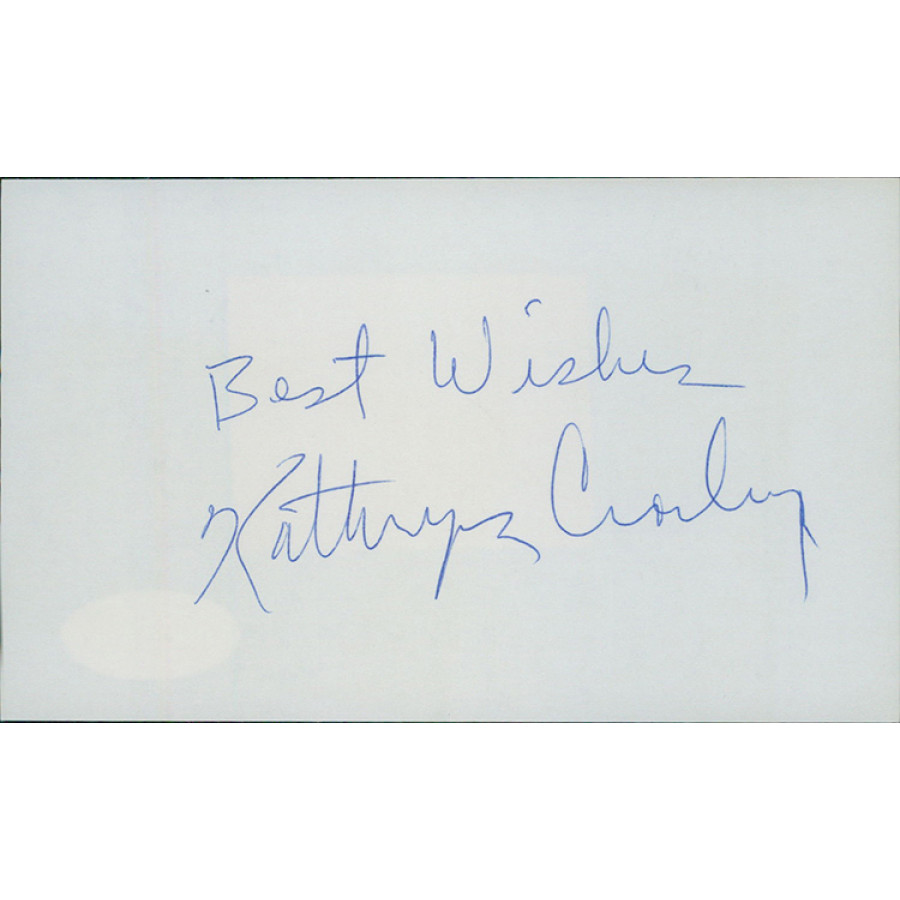 Best Wishes
Kathryn Crosby